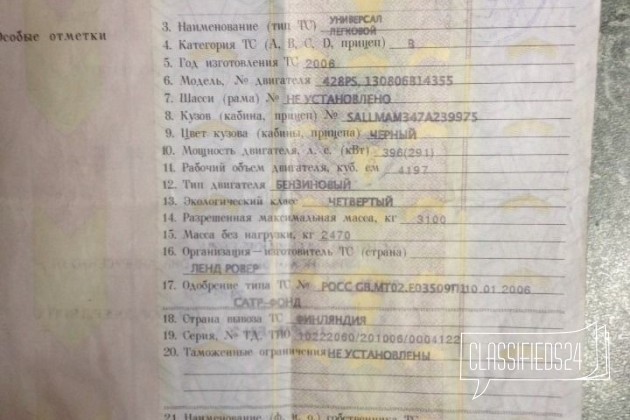 Особые отметки
3. Наименование (тип ТС) УНИВЕРСАЛ
ЛЕГКОВОЙ
4. Категория ТС (A, B, C, D, прицеп) B
5. Год изготовления ТС 2006
6. Модель, № двигателя 428PS, 130806B14355
7. Шасси (рама) № НЕ УСТАНОВЛЕНО
8. Кузов (кабина, прицеп) № SALLMAM347A239975
9. Цвет кузова (кабины, прицепа) ЧЕРНЫЙ
10. Мощность двигателя, л. с. (кВт) 396(291)
11. Рабочий объем двигателя, куб. см 4197
12. Тип двигателя БЕНЗИНОВЫЙ
13. Экологический класс ЧЕТВЕРТЫЙ
14. Разрешенная максимальная масса, кг 3100
15. Масса без нагрузки, кг 2470
16. Организация—изготовитель ТС (страна)
ЛЕНД РОВЕР
17. Одобрение типа ТС № РОСС GB.MT02.E03509П1 10.01.2006
САТР-ФОНД
18. Страна вывоза ТС ФИНЛЯНДИЯ
19. Серия, № ТД, ТПО 10222060/201006/0004122
20. Таможенные ограничения НЕ УСТАНОВЛЕНЫ
21. Наименование (ф. и. о.) собственника ТС
CLASSIFIEDS24